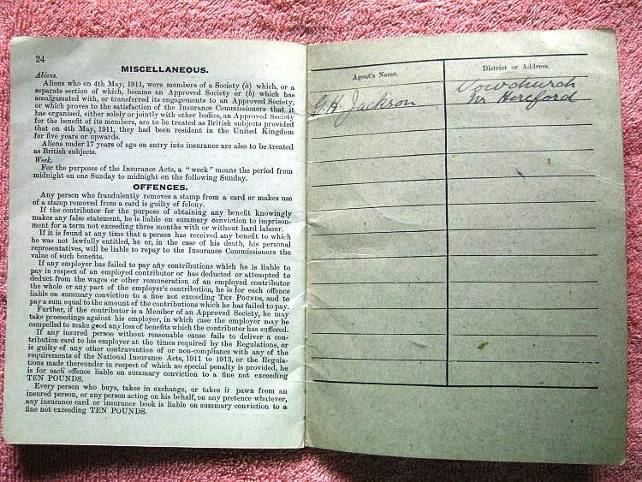 24
MISCELLANEOUS.
Aliens.
Aliens who on 4th May, 1911, were members of a Society (a) which, or a
separate section of which, became an Approved Society or (b) which has
amalgamated with, or transferred its engagements to an Approved Society,
or which proves to the satisfaction of the Insurance Commissioners that it
has organised, either solely or jointly with other bodies, an Approved Society
for the benefit of its members, are to be treated as British subjects provided
that on 4th May, 1911, they had been resident in the United Kingdom
for five years or upwards.
Aliens under 17 years of age on entry into insurance are also to be treated
as British subjects.
Week.
For the purposes of the Insurance Acts, a "week" means the period from
midnight on one Sunday to midnight on the following Sunday.
OFFENCES.
Any person who fraudulently removes a stamp from a card or makes use
of a stamp removed from a card is guilty of felony.
If the contributor for the purpose of obtaining any benefit knowingly
makes any false statement, he is liable on summary conviction to imprison-
ment for a term not exceeding three months with or without hard labour.
If it is found at any time that a person has received any benefit to which
he was not lawfully entitled, he or, in the case of his death, his personal
representatives, will be liable to repay to the Insurance Commissioners the
value of such benefits.
If any employer has failed to pay any contributions which he is liable to
pay in respect of an employed contributor or has deducted or attempted to
deduct from the wages or other remuneration of an employed contributor
the whole or any part of the employer's contribution, he is for each offence
liable on summary conviction to a fine not exceeding TEN POUNDS, and to
pay a sum equal to the amount of the contributions which he has failed to pay.
Further, if the contributor is a Member of an Approved Society, he may
take proceedings against his employer, in which case the employer may be
compelled to make good any loss of benefits which the contributor has suffered.
If any insured person without reasonable cause fails to deliver a con-
tribution card to his employer at the times required by the Regulations, or
is guilty of any other contravention of or non-compliance with any of the
requirements of the National Insurance Acts, 1911 to 1913, or the Regula-
tions made thereunder in respect of which no special penalty is provided, he
is for each offence liable on summary conviction to a fine not exceeding
TEN POUNDS.
Every person who buys, takes in exchange, or takes in pawn from an
insured person, or any person acting on his behalf, on any pretence whatever,
any insurance card or insurance book is liable on summary conviction to a
fine not exceeding TEN POUNDS.
Agent's Name. District or Address.
G. H. Jackson Vowchurch
Nr Hereford